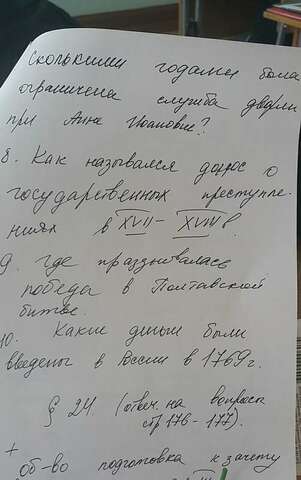 Сколькими годами была
ограничена служба дворян
при Анне Иоановне?
8. Как назывался донос о
государственных преступле-
ниях в XVII - XVIII в.
9. где праздновалась
победа в Полтавской
битве.
10. Какие деньги были
введены в России в 1769 г.
§ 24. (ответ. на вопросы
стр 176 - 177).
+
об-во подготовка к зачету